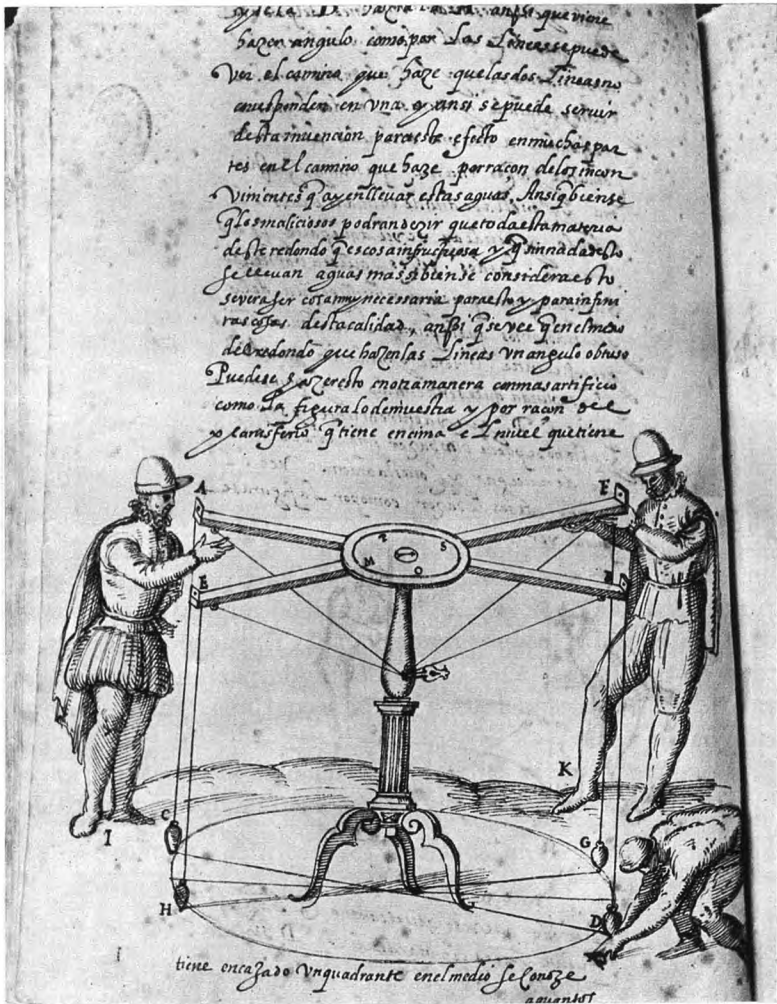 hazer angulo como por las Lineas se puede
Ver el camino que haze que las dos Lineas no
corresponden en vna y ansi se puede seruir
desta inuencion para este efecto en muchas par
tes en el camino que haze por racon de los incon
Vinientes q̃ ay en lleuar estas aguas. Ansi q̃ bien se
q̃ los maliciosos podran dezir que toda esta materia
deste redondo q̃ es cosa infructuosa y q̃ sin nada desto
se lleuan aguas mas si bien se considera esto
se vera ser cosa muy necessaria para esto y para infini
tas cosas desta calidad, anssi q̃ se vee q̃ en el medio
del redondo que hazen las Lineas Vn angulo obtuso
Puedese hazer esto en otra manera con mas artificio
como la figura lo demuestra y por racon del
q̃ tiene encima el niuel que tiene
A
F
E
B
R
S
M
O
K
I
C
G
H
D
tiene encaxado Vn quadrante en el medio se Conoze
aquantos